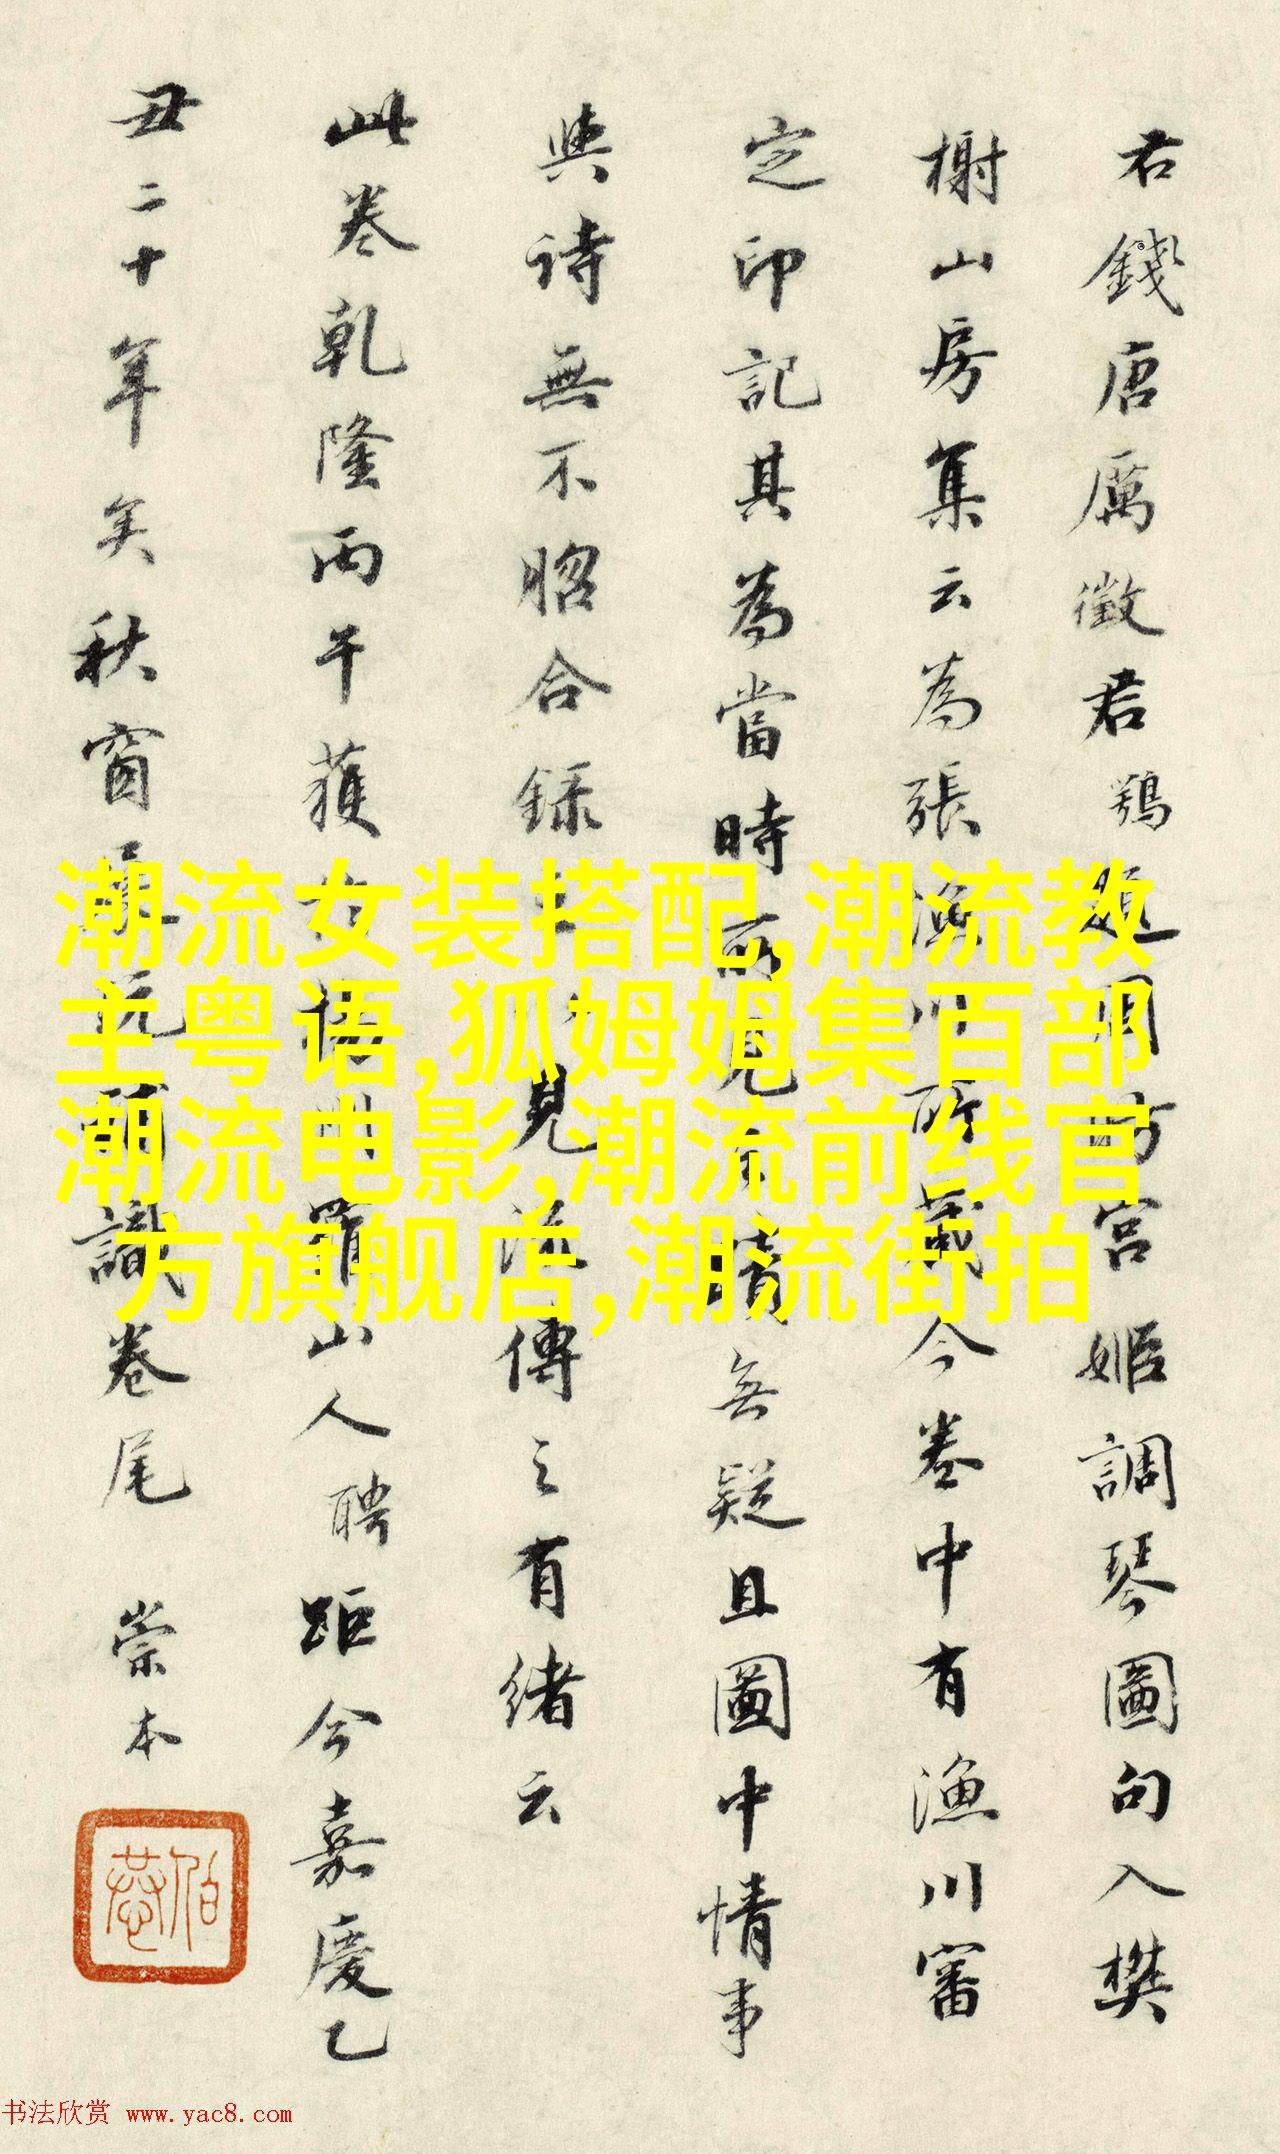 君錢唐厲徵君鶚題周昉宮姬調琴圖句入樊
榭山房集云為張漁川所藏今卷中有漁川審
定印記其為當時所見無疑且圖中情事
與詩無不昭合錄見流傳之有緒云
此卷乾隆丙午獲山人聘距今嘉慶乙
丑二十年矣秋窗識卷尾 崇本
潮流女装搭配,潮流教
主粤语,狐姆姆集百部
潮流电影,潮流前线官
方旗舰店,潮流街拍
书法欣赏 www.yac8.com